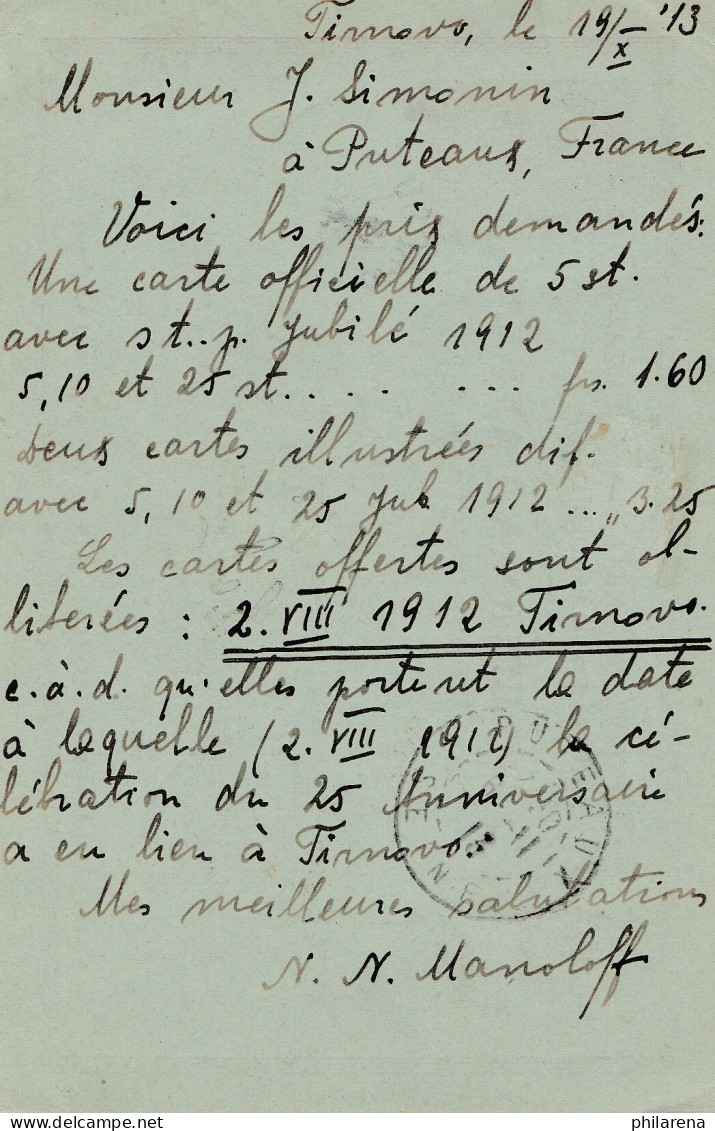 Tirnovo, le 19/X '13
Monsieur J. Simonin
à Puteaux, France
Voici les prix demandés:
Une carte officielle de 5 st.
avec st..p. Jubilé 1912
5, 10 et 25 st. . . . . . . . frs. 1.60
Deux cartes illustrées dif.
avec 5, 10 et 25 Jub 1912 ... „ 3.25
Les cartes offertes sont ob-
literées : 2. VIII 1912 Tirnovo.
c.à.d. qu'elles portent la date
à laquelle (2. VIII 1912) la cé-
lébration du 25 Anniversaire
a eu lieu à Tirnovo.
Mes meilleures salutations
N. N. Manoloff
philarena